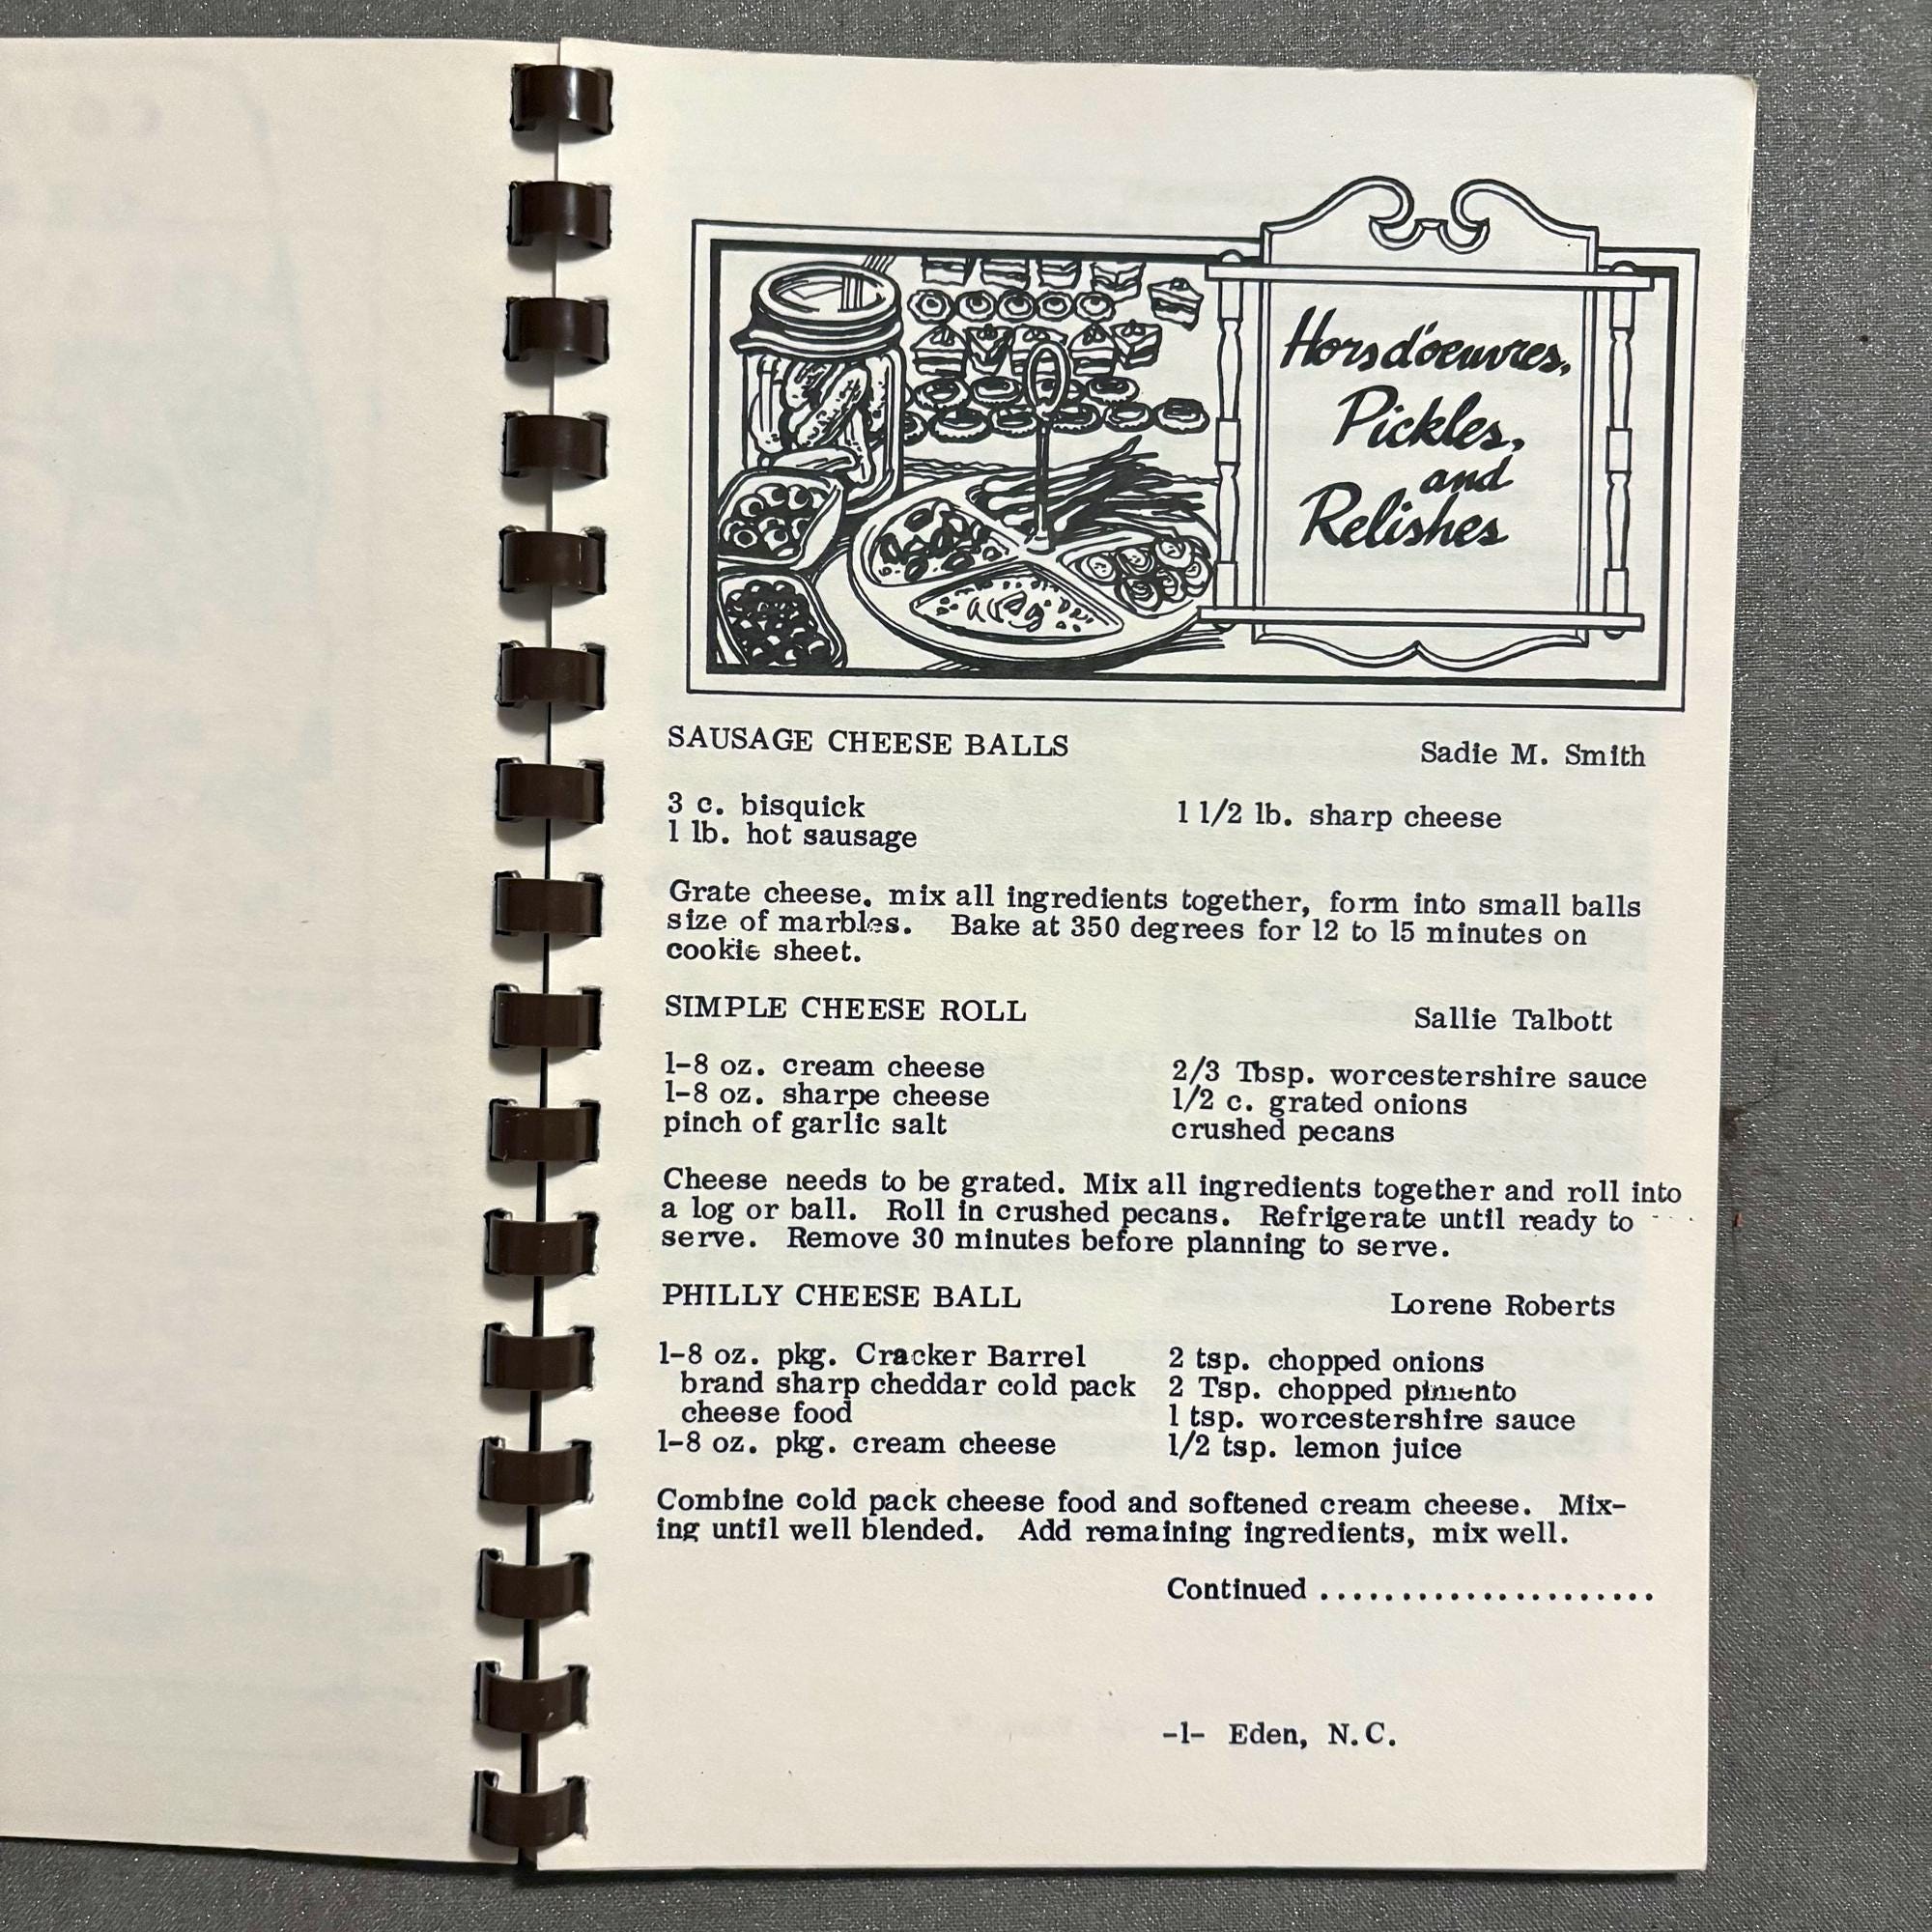 Hors d'oeuvres,
Pickles,
and
Relishes
SAUSAGE CHEESE BALLS Sadie M. Smith
3 c. bisquick 1 1/2 lb. sharp cheese
1 lb. hot sausage
Grate cheese, mix all ingredients together, form into small balls
size of marbles. Bake at 350 degrees for 12 to 15 minutes on
cookie sheet.
SIMPLE CHEESE ROLL Sallie Talbott
1-8 oz. cream cheese 2/3 Tbsp. worcestershire sauce
1-8 oz. sharpe cheese 1/2 c. grated onions
pinch of garlic salt crushed pecans
Cheese needs to be grated. Mix all ingredients together and roll into
a log or ball. Roll in crushed pecans. Refrigerate until ready to
serve. Remove 30 minutes before planning to serve.
PHILLY CHEESE BALL Lorene Roberts
1-8 oz. pkg. Cracker Barrel 2 tsp. chopped onions
brand sharp cheddar cold pack 2 Tsp. chopped pimento
cheese food 1 tsp. worcestershire sauce
1-8 oz. pkg. cream cheese 1/2 tsp. lemon juice
Combine cold pack cheese food and softened cream cheese. Mix-
ing until well blended. Add remaining ingredients, mix well.
Continued .....................
-1- Eden, N.C.